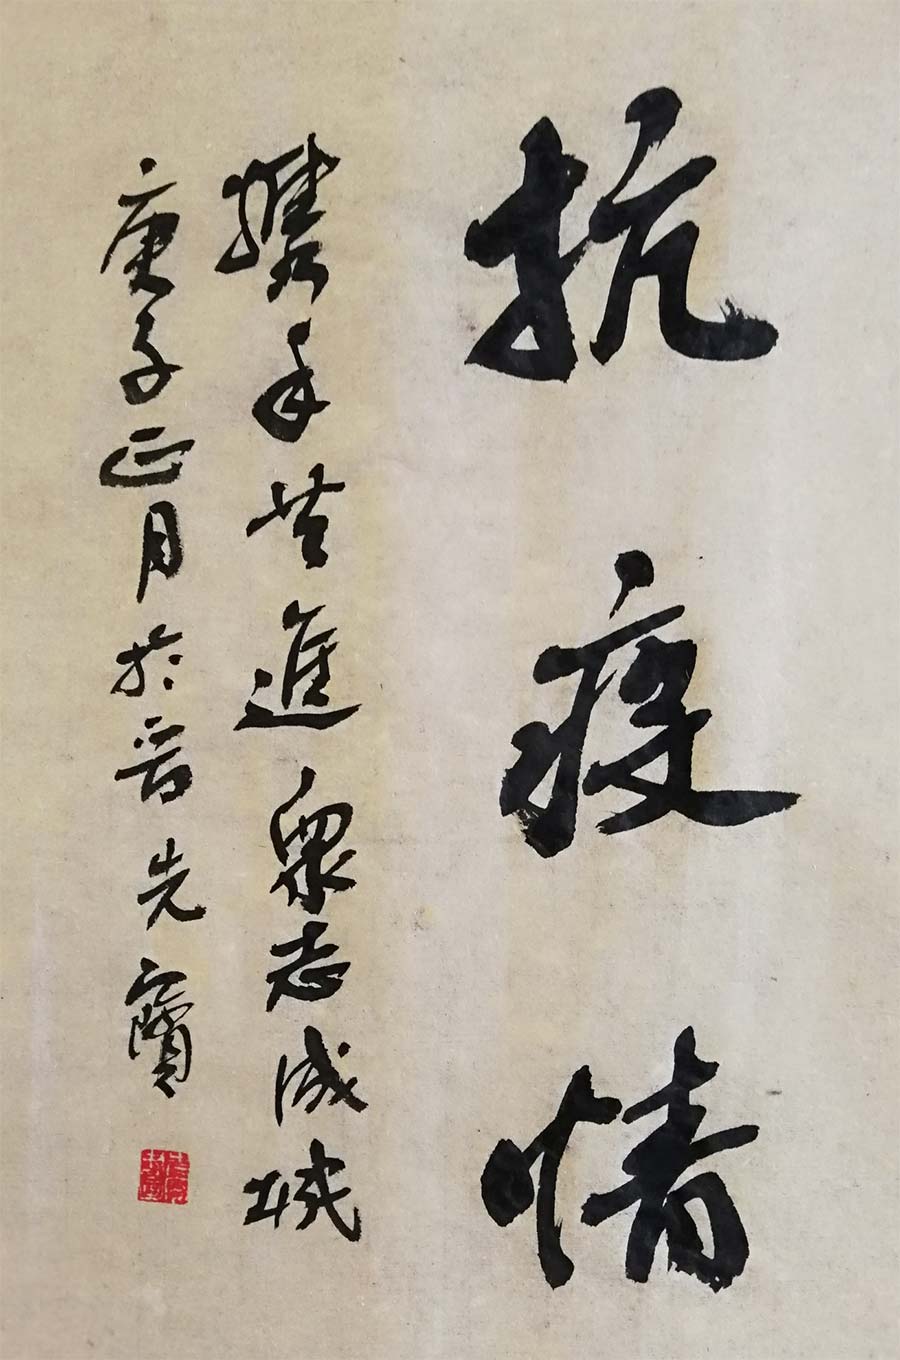 抗疫情
攜手共進眾志成城
庚子正月於晉先寶